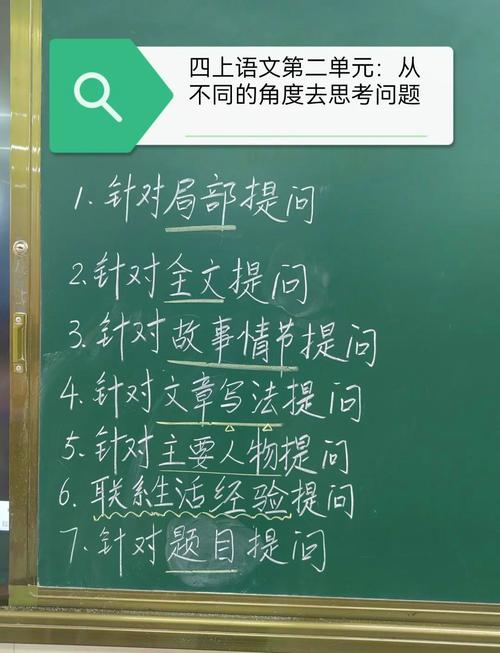 四上语文第二单元：从
不同的角度去思考问题
1. 针对局部提问
2. 针对全文提问
3. 针对故事情节提问
4. 针对文章写法提问
5. 针对主要人物提问
6. 联系生活经验提问
7. 针对题目提问